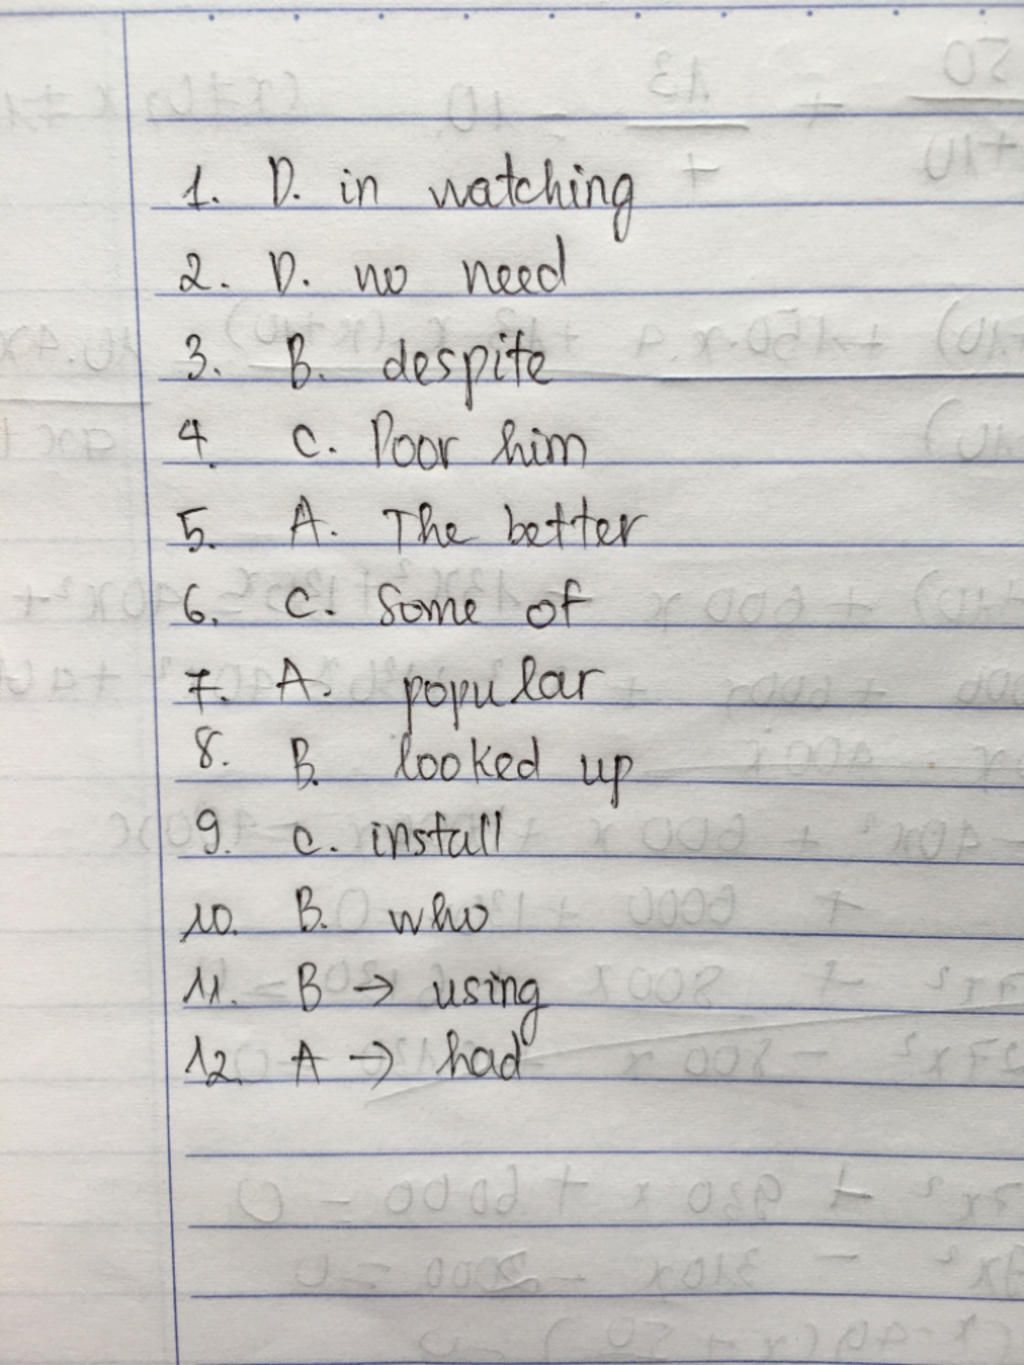 1. D. in watching
2. D. no need
3. B. despite
4. C. Poor him
5. A. The better
6. C. Some of
7. A. popular
8. B. looked up
9. C. install
10. B. who
11. B → using
12. A → had